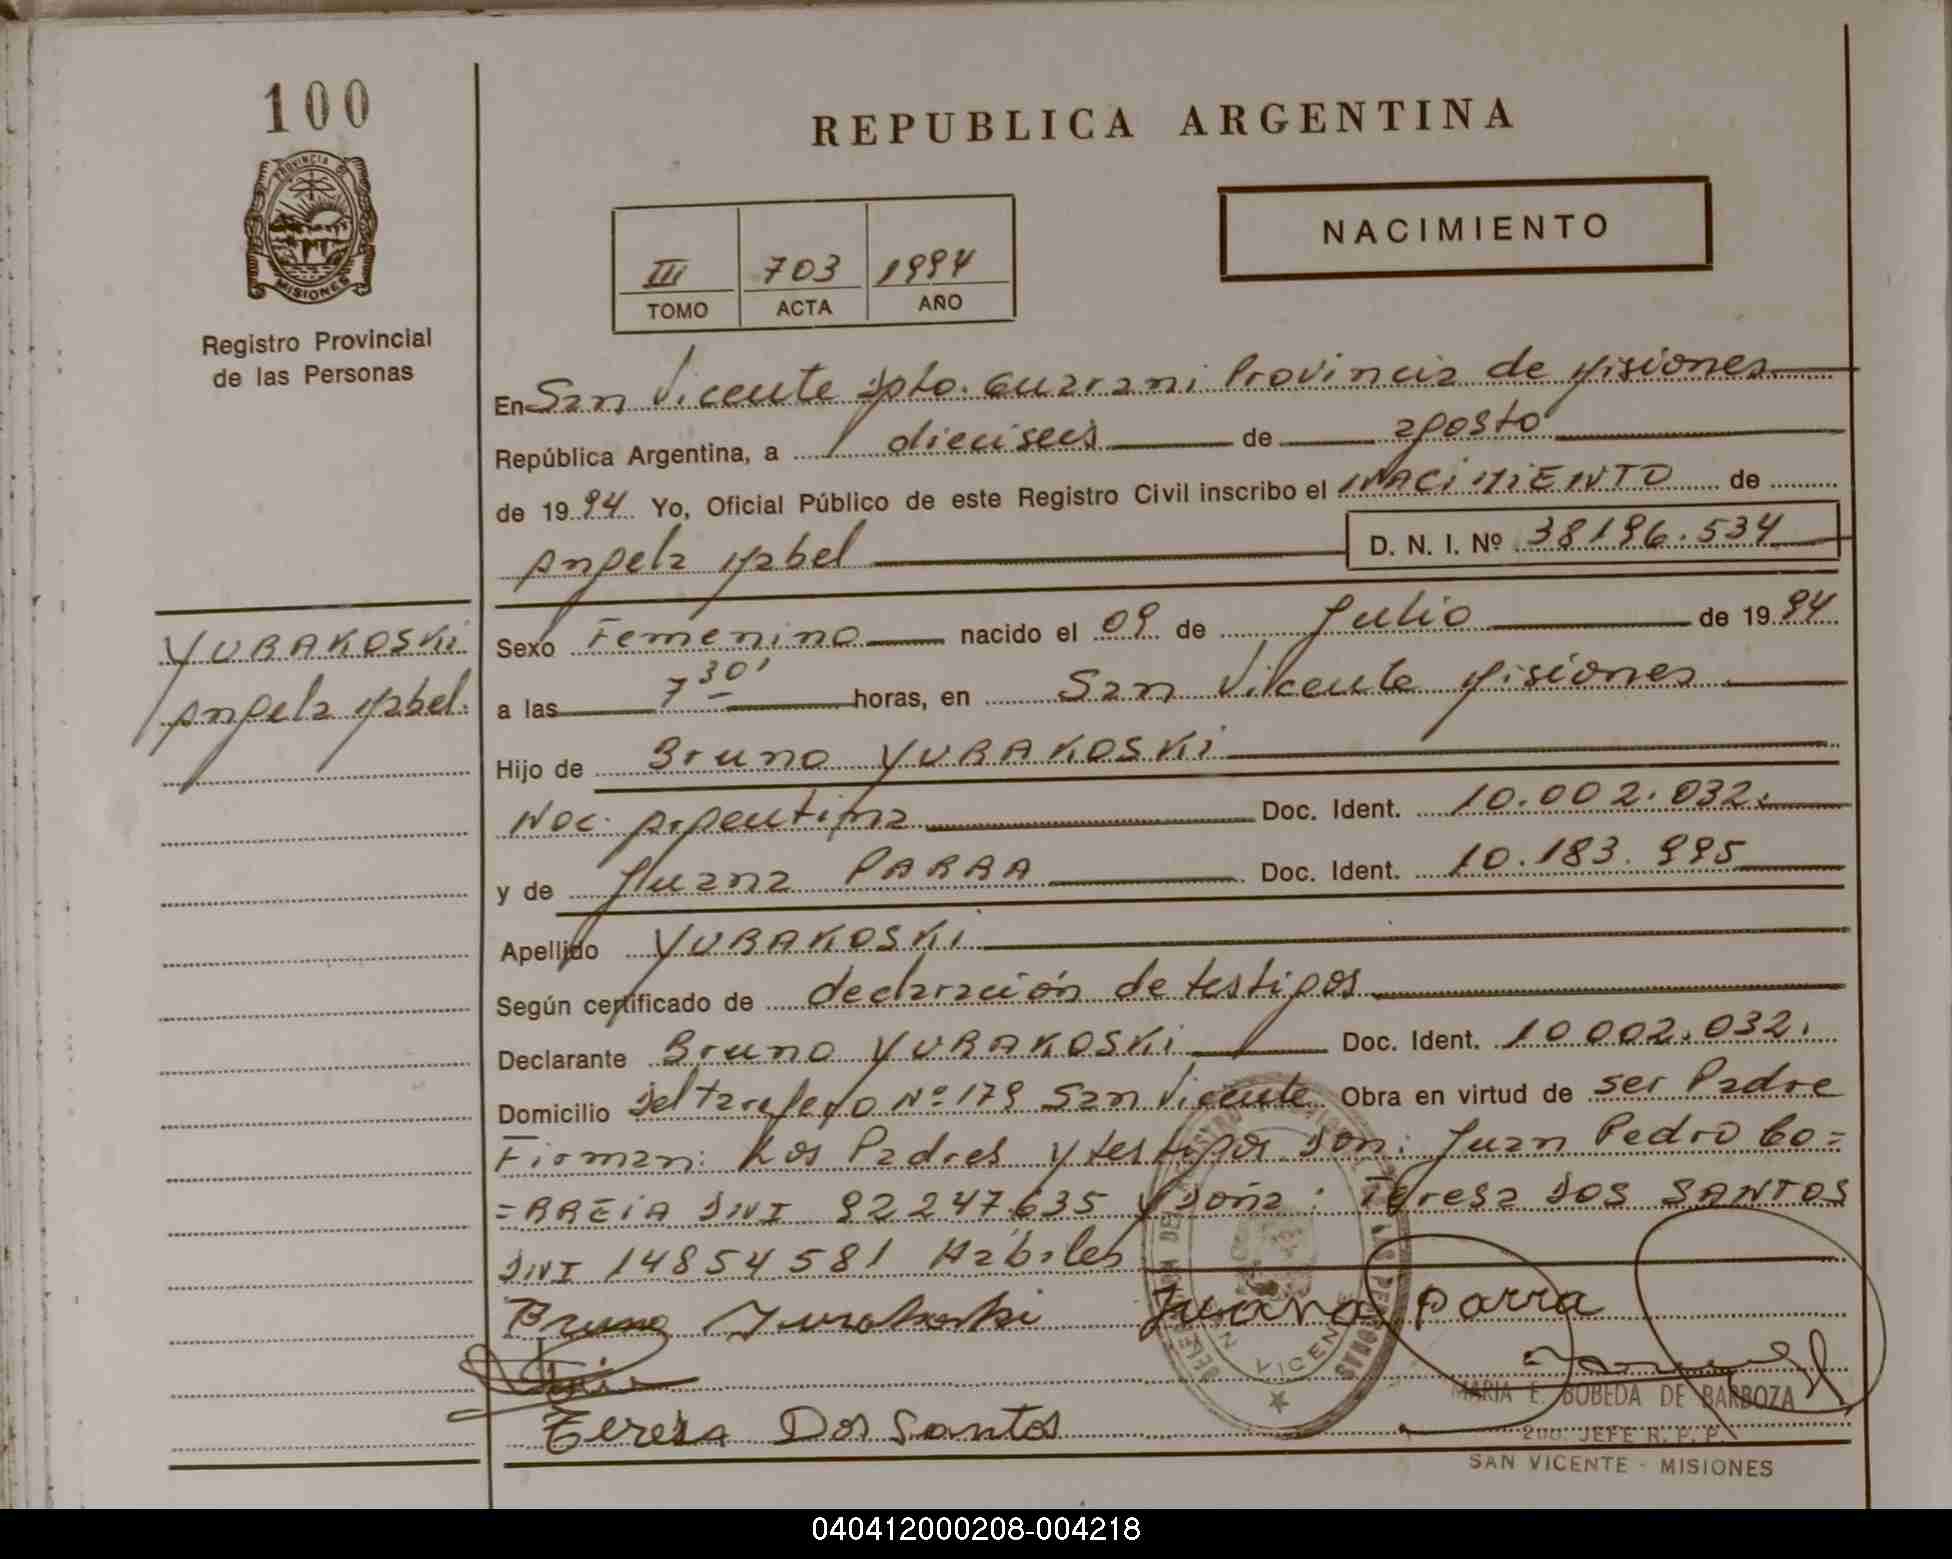 100
PROVINCIA DE
MISIONES
Registro Provincial
de las Personas
REPUBLICA ARGENTINA
NACIMIENTO
III 703 1994
TOMO ACTA AÑO
En San Vicente Dpto. Guarani Provincia de Misiones
República Argentina, a dieciseis de agosto
de 1994 Yo, Oficial Público de este Registro Civil inscribo el NACIMIENTO de
Angela Mabel D. N. I. Nº 38196.534
YURAKOSKi
Angela Mabel.
Sexo Femenino nacido el 09 de Julio de 1994
a las 7 30' horas, en San Vicente Misiones
Hijo de Bruno YURAKOSKi
Nac. Argentina Doc. Ident. 10.002.032.
y de Juana PARRA Doc. Ident. 10.183.995
Apellido YURAKOSKi
Según certificado de declaración de testigos
Declarante Bruno YURAKOSKi Doc. Ident. 10002.032.
Domicilio Nº 179 San Vicente Obra en virtud de ser Padre
Firman: Los Padres y testigos Don: Juan Pedro Co=
=RREiA DNI 92247635 y Doña: Teresa DOS SANTOS
DNI 14854581 Habiles
Bruno Yurakoski Juana parra
Teresa Dos Santos
MARIA E. BOBEDA DE BARBOZA
JEFE R. P. P.
SAN VICENTE - MISIONES
040412000208-004218